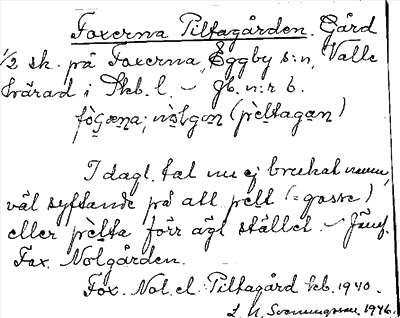 Foxerna Piltagården. Gård
1/2 sk. på Foxerna, Eggby s:n, Valle
härad i Skb. l. – Jb. n:r 6.
fòGæna; nòlgon (pèltagan)
I dagl. tal nu ej brukat namn,
väl syftande på att pelt (= gosse)
eller pèlta förr ägt stället. – Jämf.
Fox. Nolgården.
Fox. Nol. el. Piltagård tcb. 1940.
L. A. Svenungsson 1946.